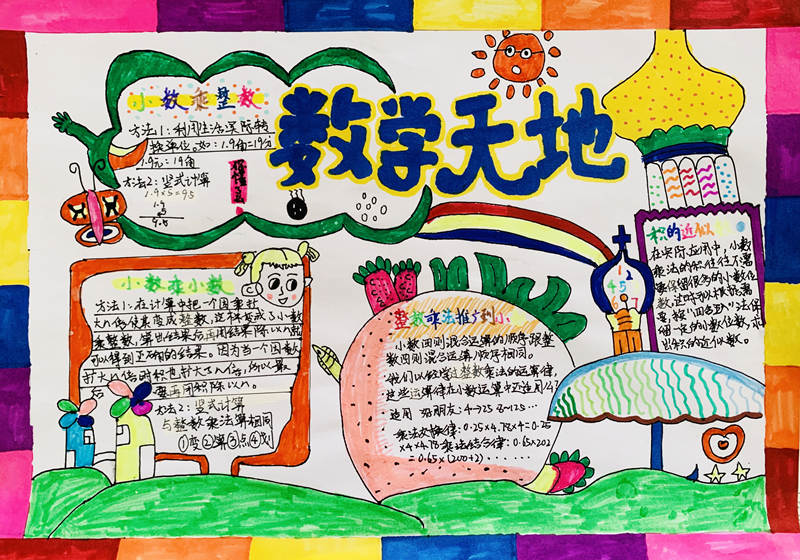 数学天地
小数乘整数
方法1:利用生活实际转
换单位。如:1.9角=19分
1.9元=19角
方法2:竖式计算
1.9×5=95
1.9
5
9.5
小数乘小数
方法1:在计算中把一个因数扩
大n倍使其变成整数,这样变成了小数
乘整数,算出结果后再用结果除以n就
可以得到正确的结果。因为当一个因数
扩大n倍时积也扩大了n倍,所以最
后要再用积除以n。
方法2:竖式计算
与整数乘法算相同
①变②算③点④划
整数乘法推广到小
小数四则混合运算的顺序跟整
数四则混合运算顺序相同。
我们以经学过整数乘法的运算律,
这些运算律在小数运算中还适用么?
适用 好朋友:4-25 8-125…
乘法交换律:0.25×4.78×4=0.25
×4×4.78 乘法结合律:0.65×202
=0.65×(200+2)......
积的近似
在实际应用中,小数
乘法的积往往不需
要保留很多的小数位
数,这时可以根据需
要,按“四舍五入”法保
留一定的小数位数,求
出积的近似数。
1
2
4 5
6 7